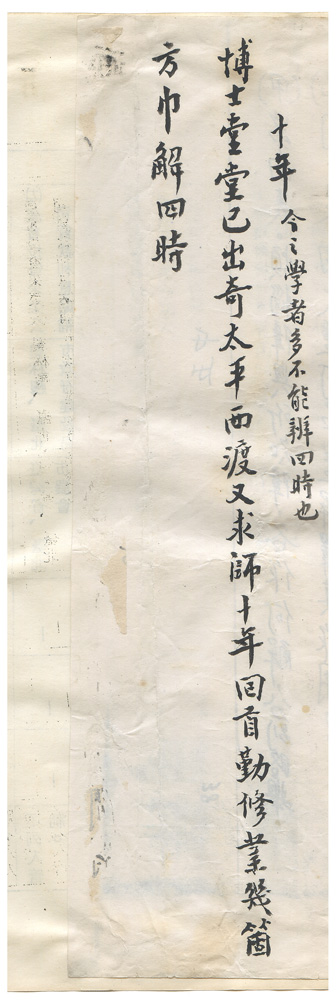 十年 今之學者多不能辨四時也
博士堂堂已出奇太平西渡又求師十年回首勤修業幾箇
方巾解四時